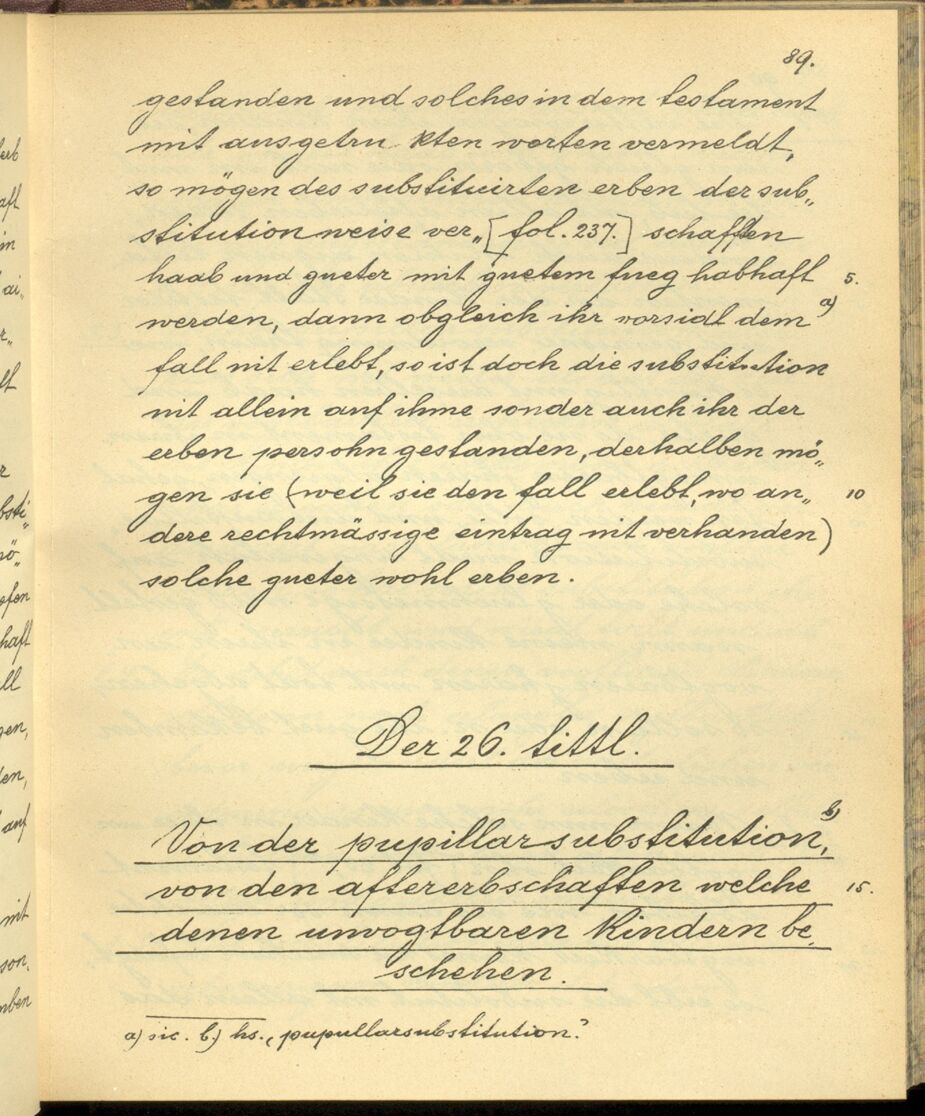 89.
gestanden und solches in dem testament
mit ausgetru kten worten vermeldt,
so mögen des substituirten erben der sub„
stitution weise ver„ [fol. 237.] schafften
haab und gueter mit guetem fueg habhaft 5.
werden, dann obgleich ihr vorsidt dem a)
fall nit erlebt, so ist doch die substitution
nit allein auf ihme sonder auch ihr der
erben persohn gestanden, derhalben mö„
gen sie (weil sie den fall erlebt, wo an„ 10
dere rechtmässige eintrag nit verhanden)
solche gueter wohl erben.
Der 26. tittl.
Von der pupillar substitution, b)
von den aftererbschaften welche 15.
denen unvogtbaren Kindern be„
schehen.
a) sic. b.) hs. „pupullarsubstitution.“